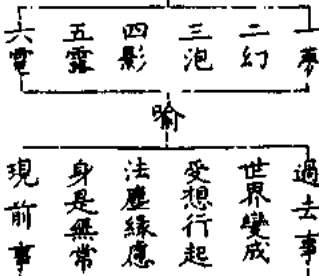 一夢
二幻
三泡
四影
五露
六電
喻
過去事
世界變成
受想行起
法塵緣慮
身是無常
現前事